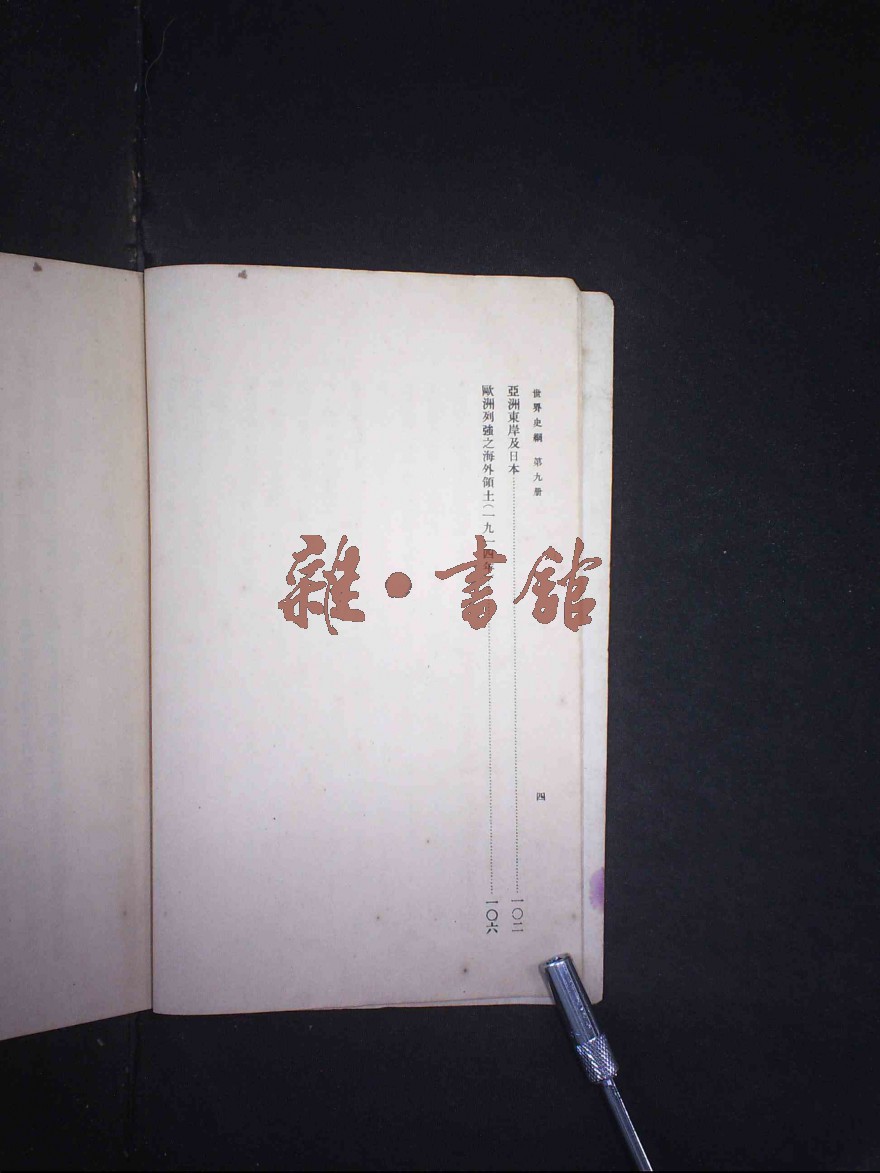 世界史綱 第九册 四
亞洲東岸及日本……一〇二
歐洲列強之海外領土(一九一四年……一〇六
雜·書館